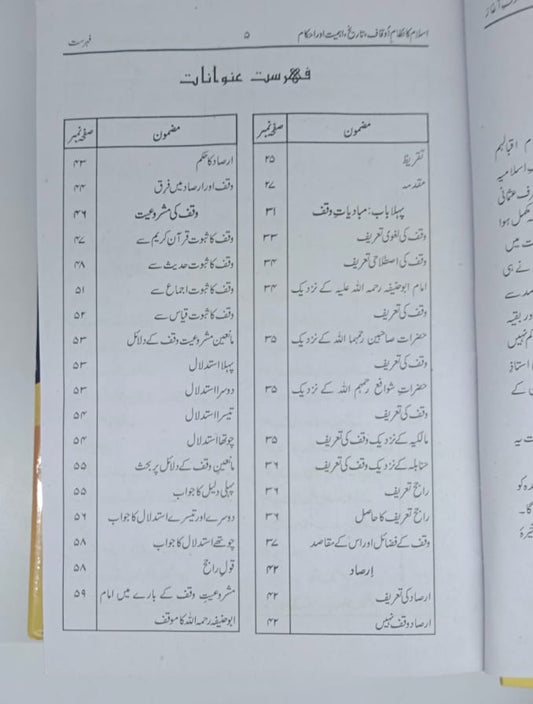 اسلام کا نظامِ اَوقاف، تاریخ، اہمیت اور احکام ۵ فہرست
فہرست عنوانات
مضمون صفحہ نمبر
تقریظ ۲۵
مقدمہ ۲۷
پہلا باب: مبادیاتِ وقف ۳۱
وقف کی لغوی تعریف ۳۳
وقف کی اصطلاحی تعریف ۳۴
امام ابوحنیفہ رحمہ اللہ علیہ کے نزدیک ۳۴
وقف کی تعریف
حضرات صاحبین رحمہما اللہ کے نزدیک ۳۵
وقف کی تعریف
حضراتِ شوافع رحمہم اللہ کے نزدیک ۳۵
وقف کی تعریف
مالکیہ کے نزدیک وقف کی تعریف ۳۵
حنابلہ کے نزدیک وقف کی تعریف ۳۶
راجح تعریف ۳۶
راجح تعریف کا حاصل ۳۶
وقف کے فضائل اور اس کے مقاصد ۳۷
اِرصاد ۴۲
ارصاد کی تعریف ۴۲
ارصاد وقف نہیں ۴۲
مضمون صفحہ نمبر
ارصاد کا حکم ۴۳
وقف اور ارصاد میں فرق ۴۴
وقف کی مشروعیت ۴۶
وقف کا ثبوت قرآن کریم سے ۴۷
وقف کا ثبوت حدیث سے ۴۸
وقف کا ثبوت اجماع سے ۵۱
وقف کا ثبوت قیاس سے ۵۲
مانعین مشروعیت وقف کے دلائل ۵۳
پہلا استدلال ۵۳
دوسرا استدلال ۵۳
تیسرا استدلال ۵۴
چوتھا استدلال ۵۴
مانعینِ وقف کے دلائل پر بحث ۵۵
پہلی دلیل کا جواب ۵۵
دوسرے اور تیسرے استدلال کا جواب ۵۶
چوتھے استدلال کا جواب ۵۸
قولِ راجح ۵۸
مشروعیتِ وقف کے بارے میں امام ۵۹
ابوحنیفہ رحمہ اللہ کا موقف